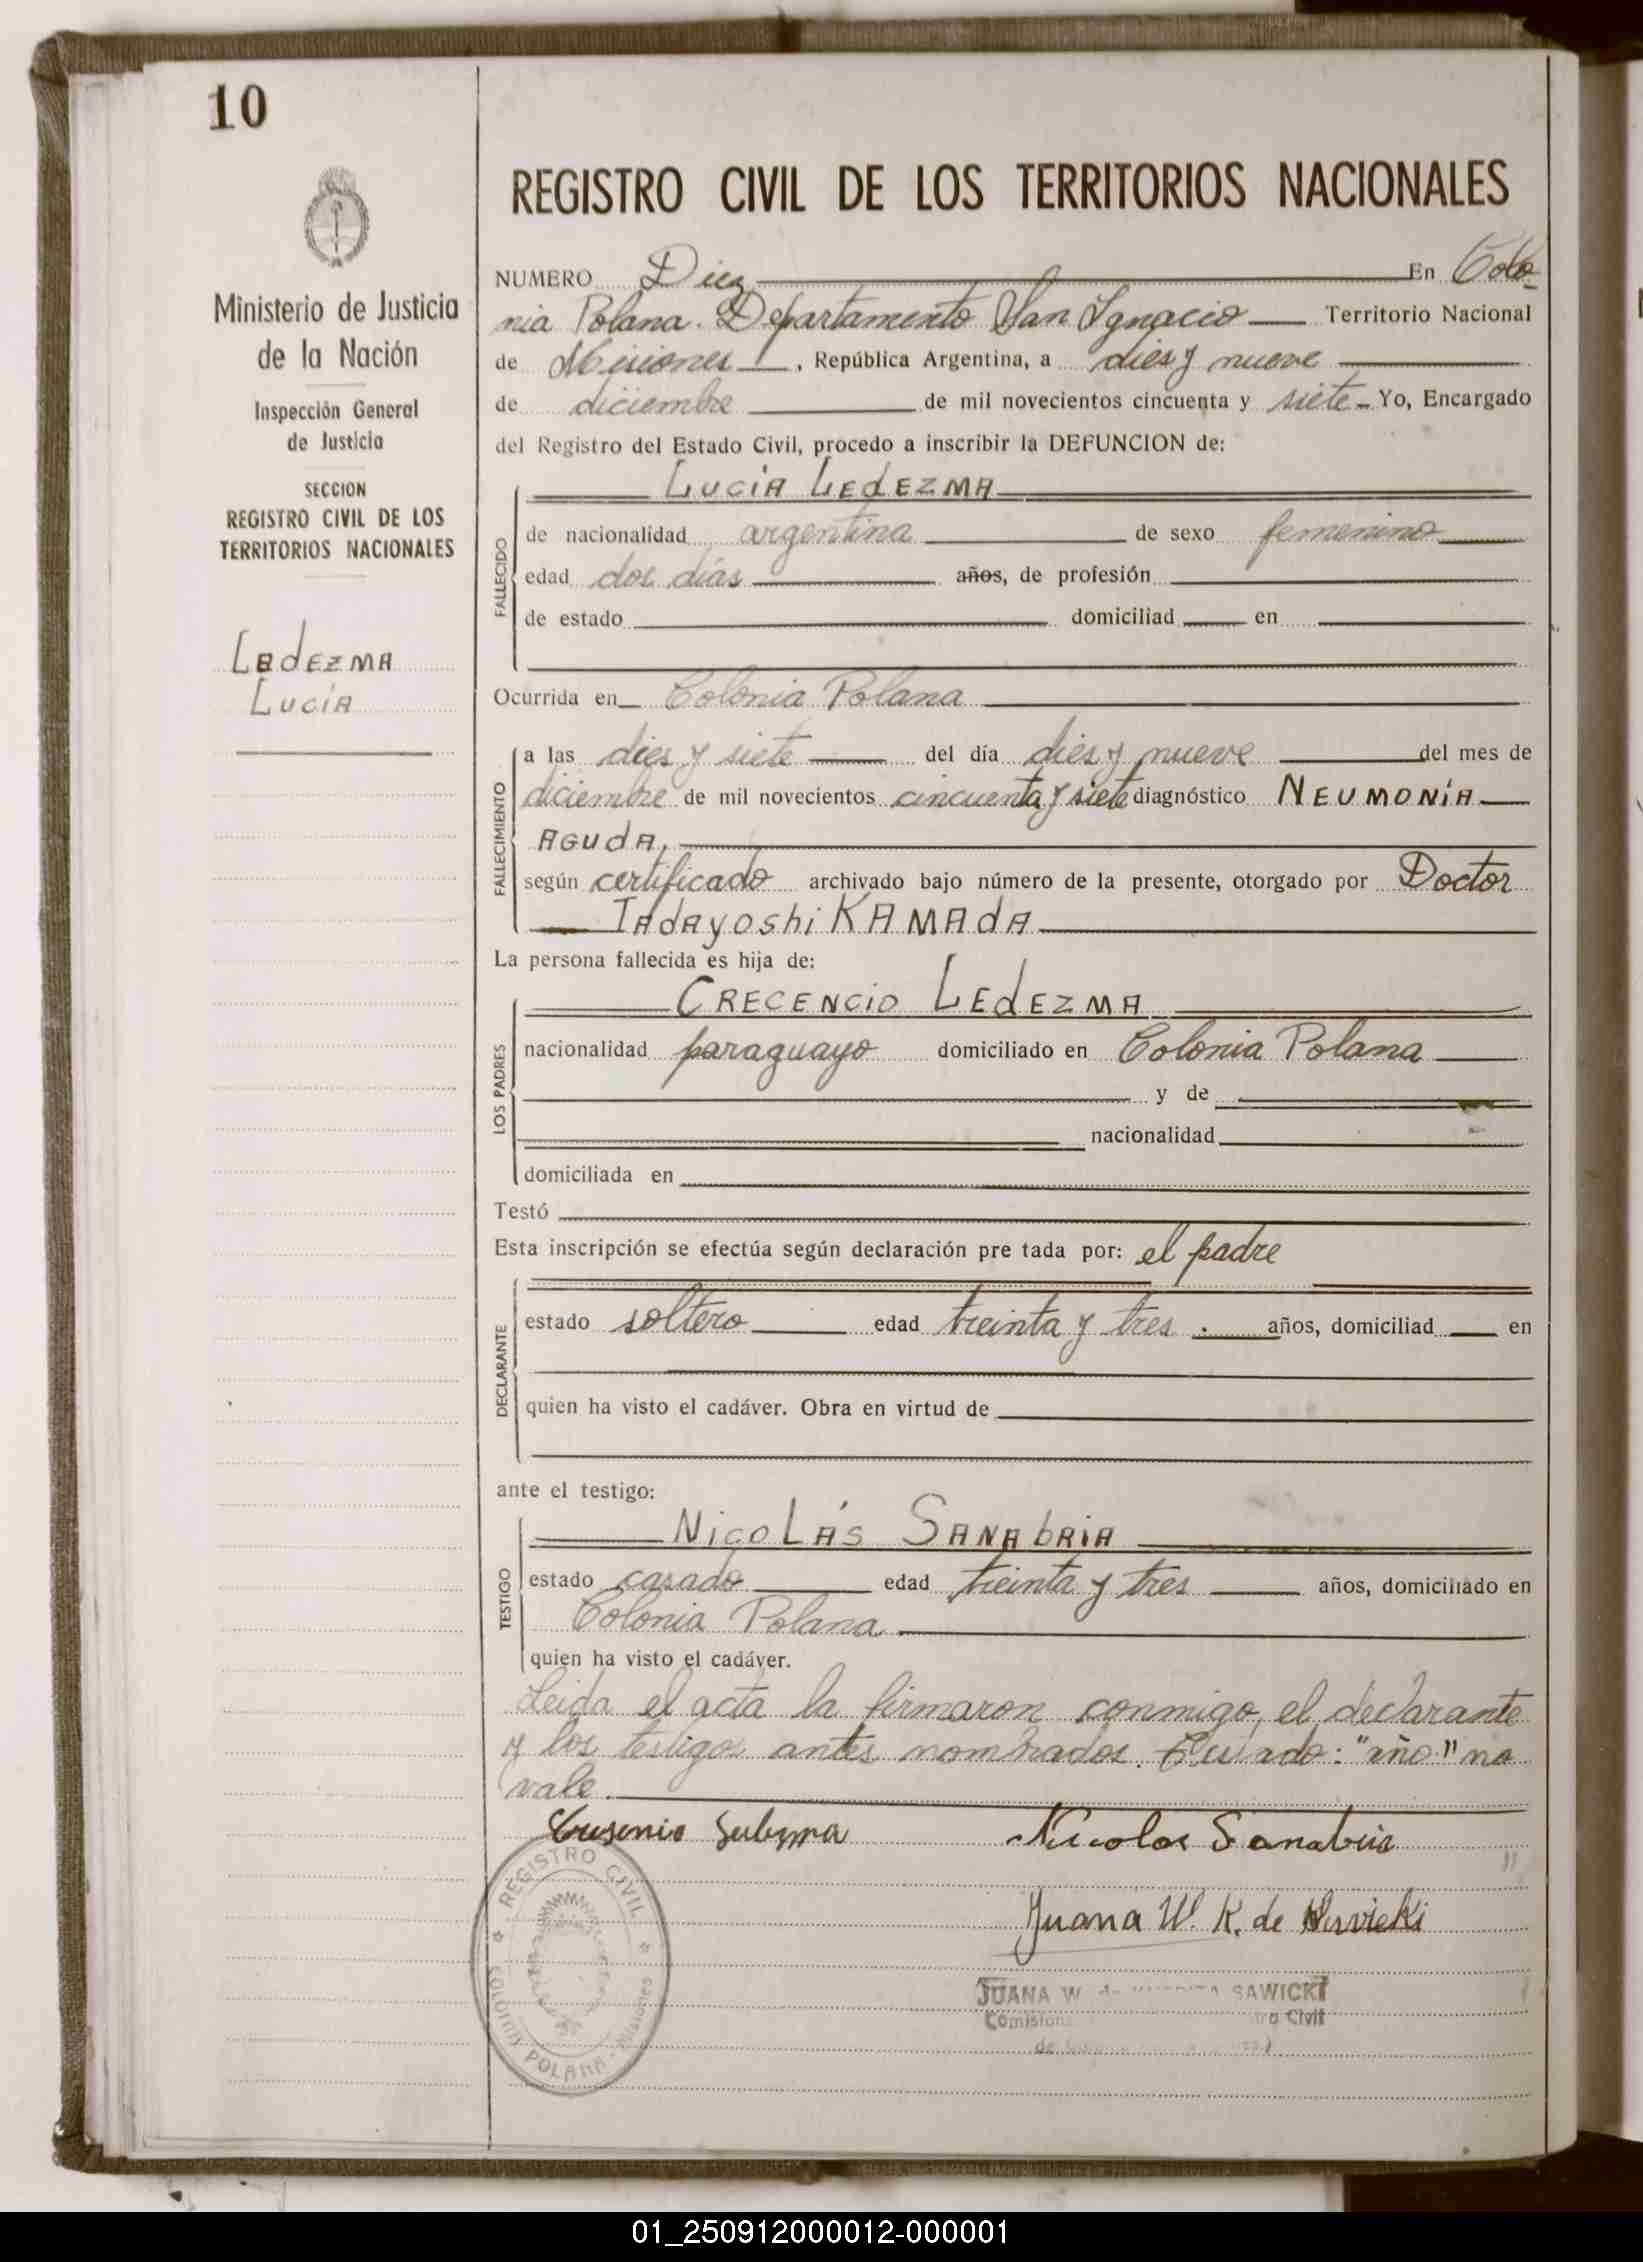 10
Ministerio de Justicia
de la Nación
Inspección General
de Justicia
SECCION
REGISTRO CIVIL DE LOS
TERRITORIOS NACIONALES
Ledezma
Lucía
REGISTRO CIVIL DE LOS TERRITORIOS NACIONALES
NUMERO Diez En Colo-
nia Polana. Departamento San Ignacio Territorio Nacional
de Misiones, República Argentina, a dies y nueve
de diciembre de mil novecientos cincuenta y siete Yo, Encargado
del Registro del Estado Civil, procedo a inscribir la DEFUNCION de:
Lucía Ledezma
FALLECIDO
de nacionalidad argentina de sexo femenino
edad dos días años, de profesión
de estado domiciliad en
Ocurrida en Colonia Polana
FALLECIMIENTO
a las dies y siete del día dies y nueve del mes de
diciembre de mil novecientos cincuenta y siete diagnóstico NEUMONÍA
AGUDA,
según certificado archivado bajo número de la presente, otorgado por Doctor
Tadayoshi KAMADA
La persona fallecida es hija de:
LOS PADRES
CRECENCIO LEDEZMA
nacionalidad paraguayo domiciliado en Colonia Polana
y de
nacionalidad
domiciliada en
Testó
Esta inscripción se efectúa según declaración pre tada por: el padre
DECLARANTE
estado soltero edad treinta y tres años, domiciliad en
quien ha visto el cadáver. Obra en virtud de
ante el testigo:
TESTIGO
NICOLÁS SANABRIA
estado casado edad treinta y tres años, domiciliado en
Colonia Polana
quien ha visto el cadáver.
Leida el acta la firmaron conmigo, el declarante
y los testigos antes nombrados. "año" no
vale.
Nicolas Sanabria
Juana W. K. de
JUANA W SAWICKI
REGISTRO CIVIL
COLONIA POLANA - Misiones
01_250912000012-000001